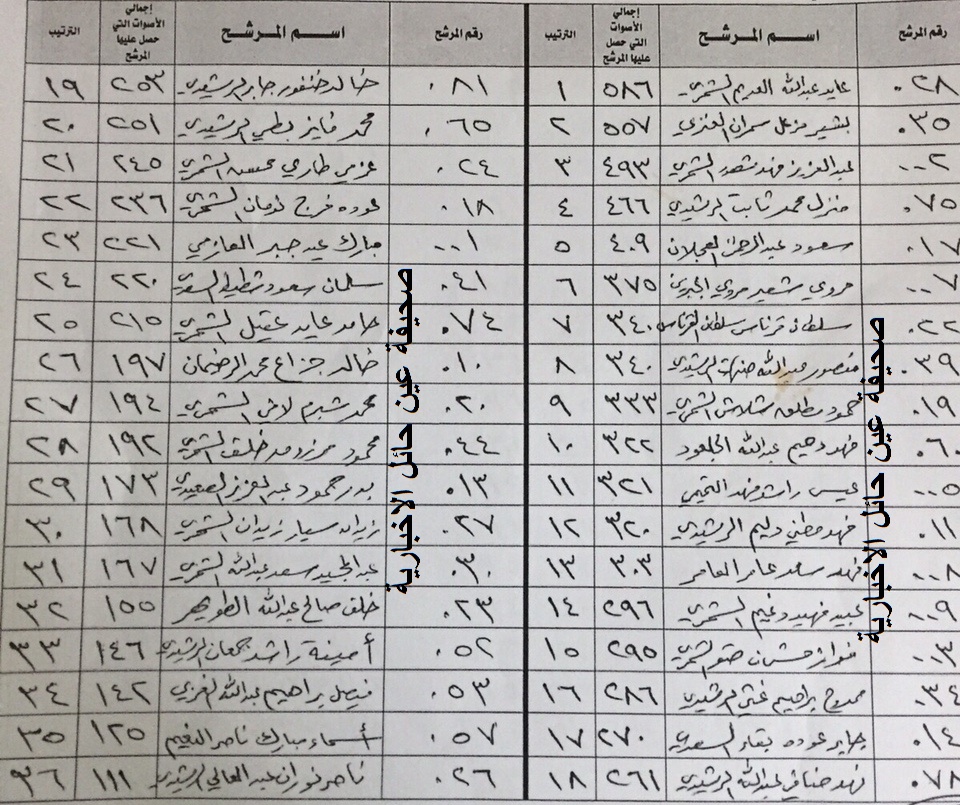 رقم المرشح | اسم المرشح | إجمالي الأصوات التي حصل عليها المرشح | الترتيب | رقم المرشح | اسم المرشح | إجمالي الأصوات التي حصل عليها المرشح | الترتيب
٠٢٨ | عايد عبدالله العديم الشمري | ٥٨٦ | ١ | ٠٨١ | خالد خنفور جابر الرشيدي | ٢٥٣ | ١٩
٠٣٥ | بشير مزعل سمران العنزي | ٥٥٧ | ٢ | ٠٦٥ | محمد فايز بطي الرشيدي | ٢٥١ | ٢٠
٠٠٢ | عبدالعزيز فهد الشمري | ٤٩٣ | ٣ | ٠٢٤ | عزمي طاري محسن الشمري | ٢٤٥ | ٢١
٠٧٥ | منزل محمد ثابت الرشيدي | ٤٦٦ | ٤ | ٠١٨ | عوده فرج الشمري | ٢٣٦ | ٢٢
٠١٧ | سعود عبدالرحمن العجلان | ٤٠٩ | ٥ | ٠٠١ | مبارك عيد جبر العازمي | ٢٢١ | ٢٣
٠٠٧ | مروي شعير مروي | ٣٧٥ | ٦ | ٠٤١ | سلمان سعود | ٢٢٠ | ٢٤
٠٢٢ | سلطان قرناس سلطان القرناس | ٣٤٠ | ٧ | ٠٧٤ | حامد عايد عقيل الشمري | ٢١٥ | ٢٥
٠٣٩ | منصور عبدالله الرشيدي | ٣٤٠ | ٨ | ٠١٠ | خالد جزاع محمد الرضيمان | ١٩٧ | ٢٦
٠١٩ | حمود مطلق شلاش الشمري | ٣٣٣ | ٩ | ٠٢٠ | محمد شبرم لافي الشمري | ١٩٤ | ٢٧
٠٦٠ | فهد دهيم عبدالله الجلعود | ٣٢٢ | ١٠ | ٠٤٤ | محمود مرزوق خلف الشمري | ١٩٢ | ٢٨
٠٠٥ | عيسى راشد فهد التميمي | ٣٢١ | ١١ | ٠١٣ | بدر حمود عبدالعزيز الصعيدي | ١٧٣ | ٢٩
٠١١ | فهد مطني دليم الرشيدي | ٣٢٠ | ١٢ | ٠٢٧ | زيدان سيار زيدان الشمري | ١٦٨ | ٣٠
٠٠٨ | فهد سعد عامر العامر | ٣٠٣ | ١٣ | ٠٣٠ | عبدالمجيد سعد عبدالله الشمري | ١٦٧ | ٣١
٠٠٩ | عبيد فهيد دغيم الشمري | ٢٩٦ | ١٤ | ٠٢٣ | خلف صالح عبدالله الطويهر | ١٥٥ | ٣٢
٠٠٣ | فواز الشمري | ٢٩٥ | ١٥ | ٠٥٢ | أمينة راشد جمعان الرشيدي | ١٤٦ | ٣٣
٠٣٤ | ممدوح براهيم الرشيدي | ٢٨٦ | ١٦ | ٠٥٣ | فيصل براهيم عبدالله العنزي | ١٤٢ | ٣٤
٠١٤ | جابر عوده بقاء السعدي | ٢٧٠ | ١٧ | ٠٥٧ | أسماء مبارك ناصر النغيم | ١٢٥ | ٣٥
٠٧٨ | فهد عبدالله الرشيدي | ٢٦١ | ١٨ | ٠٢٦ | ناصر نوران عبدالعالي الرشيدي | ١١١ | ٣٦
صحيفة عين حائل الاخبارية
صحيفة عين حائل الاخبارية